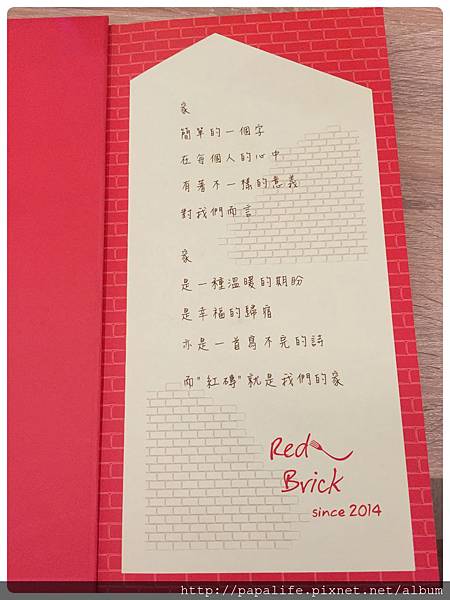 家
簡單的一個字
在每個人的心中
有著不一樣的意義
對我們而言
家
是一種溫暖的期盼
是幸福的歸宿
亦是一首寫不完的詩
而"紅磚"就是我們的家
Red
Brick
since 2014
http://papalife.pixnet.net/album